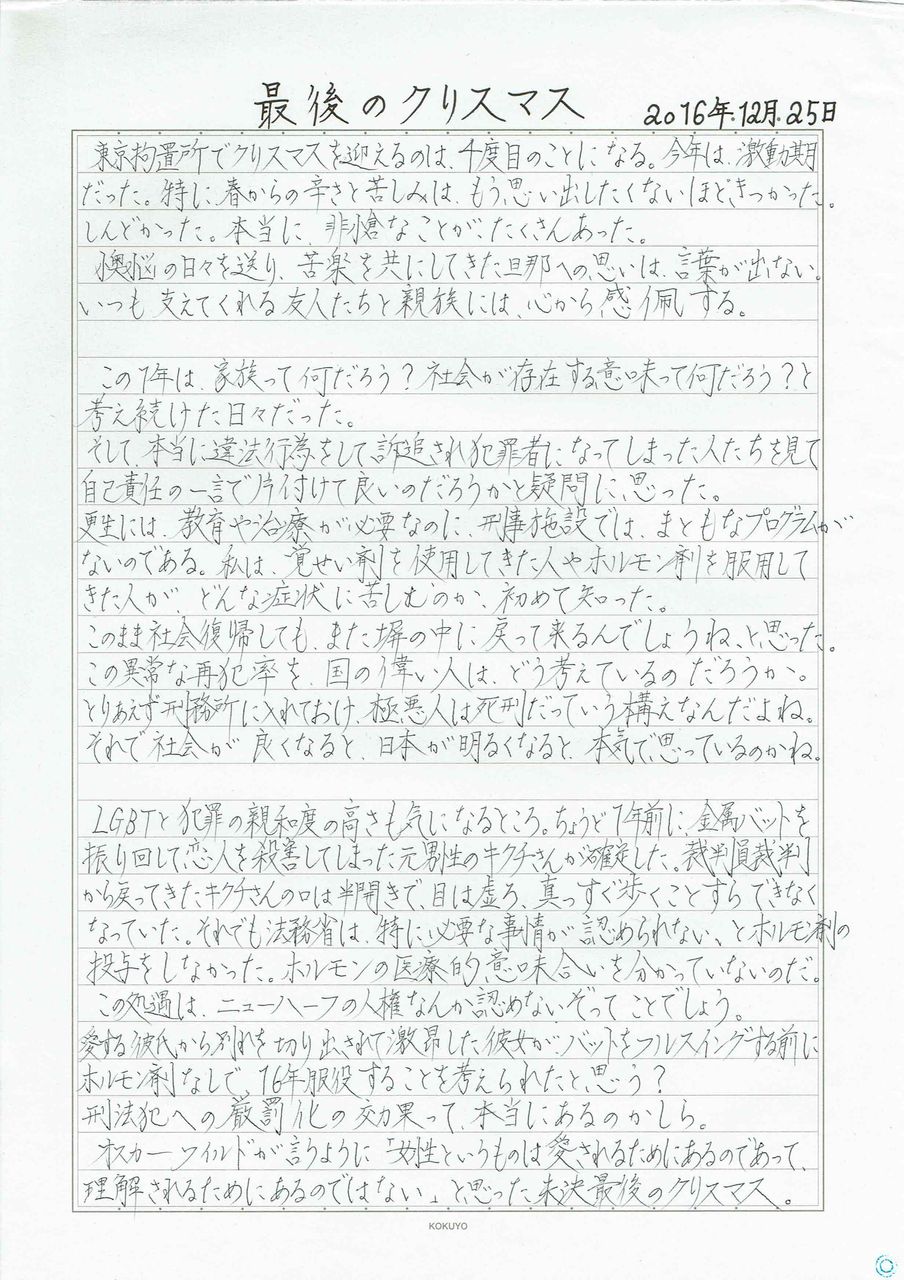 最後のクリスマス 2016年.12月.25日
東京拘置所でクリスマスを迎えるのは、4度目のことになる。今年は、激動期
だった。特に、春からの辛さと苦しみは、もう思い出したくないほど、きつかった。
しんどかった。本当に、悲愴なことが、たくさんあった。
懊悩の日々を送り、苦楽を共にしてきた旦那への思いは、言葉が出ない。
いつも支えてくれる友人たちと親族には、心から感佩する。
この1年は、家族って何だろう?社会が存在する意味って何だろう?と
考え続けた日々だった。
そして、本当に違法行為をして訴追され犯罪者になってしまった人たちを見て
自己責任の一言で片付けて良いのだろうかと疑問に思った。
更生には、教育や治療が必要なのに、刑事施設では、まともなプログラムが
ないのである。私は、覚せい剤を使用してきた人やホルモン剤を服用して
きた人が、どんな症状に苦しむのか、初めて知った。
このまま社会復帰しても、また塀の中に戻って来るんでしょうね、と思った。
この異常な再犯率を、国の偉い人は、どう考えているのだろうか。
とりあえず刑務所に入れておけ、極悪人は死刑だっていう構えなんだよね。
それで社会が良くなると、日本が明るくなると、本気で思っているのかね。
LGBTと犯罪の親和度の高さも気になるところ。ちょうど1年前に、金属バットを
振り回して恋人を殺害してしまった元男性のキクチさんが確定した。裁判員裁判
から戻ってきたキクチさんの口は半開きで、目は虚ろ、真っすぐ歩くことすらできなく
なっていた。それでも法務省は、特に必要な事情が認められない、とホルモン剤の
投与をしなかった。ホルモンの医療的意味合いを分かっていないのだ。
この処遇は、ニューハーフの人権なんか認めないぞってことでしょう。
愛する彼氏から別れを切り出されて激昂した彼女が、バットをフルスイングする前に
ホルモン剤なしで、16年服役することを考えられたと思う?
刑法犯への厳罰化の効果って、本当にあるのかしら。
オスカーワイルドが言うように「女性というものは愛されるためにあるのであって、
理解されるためにあるのではない」と思った未決最後のクリスマス。
KOKUYO